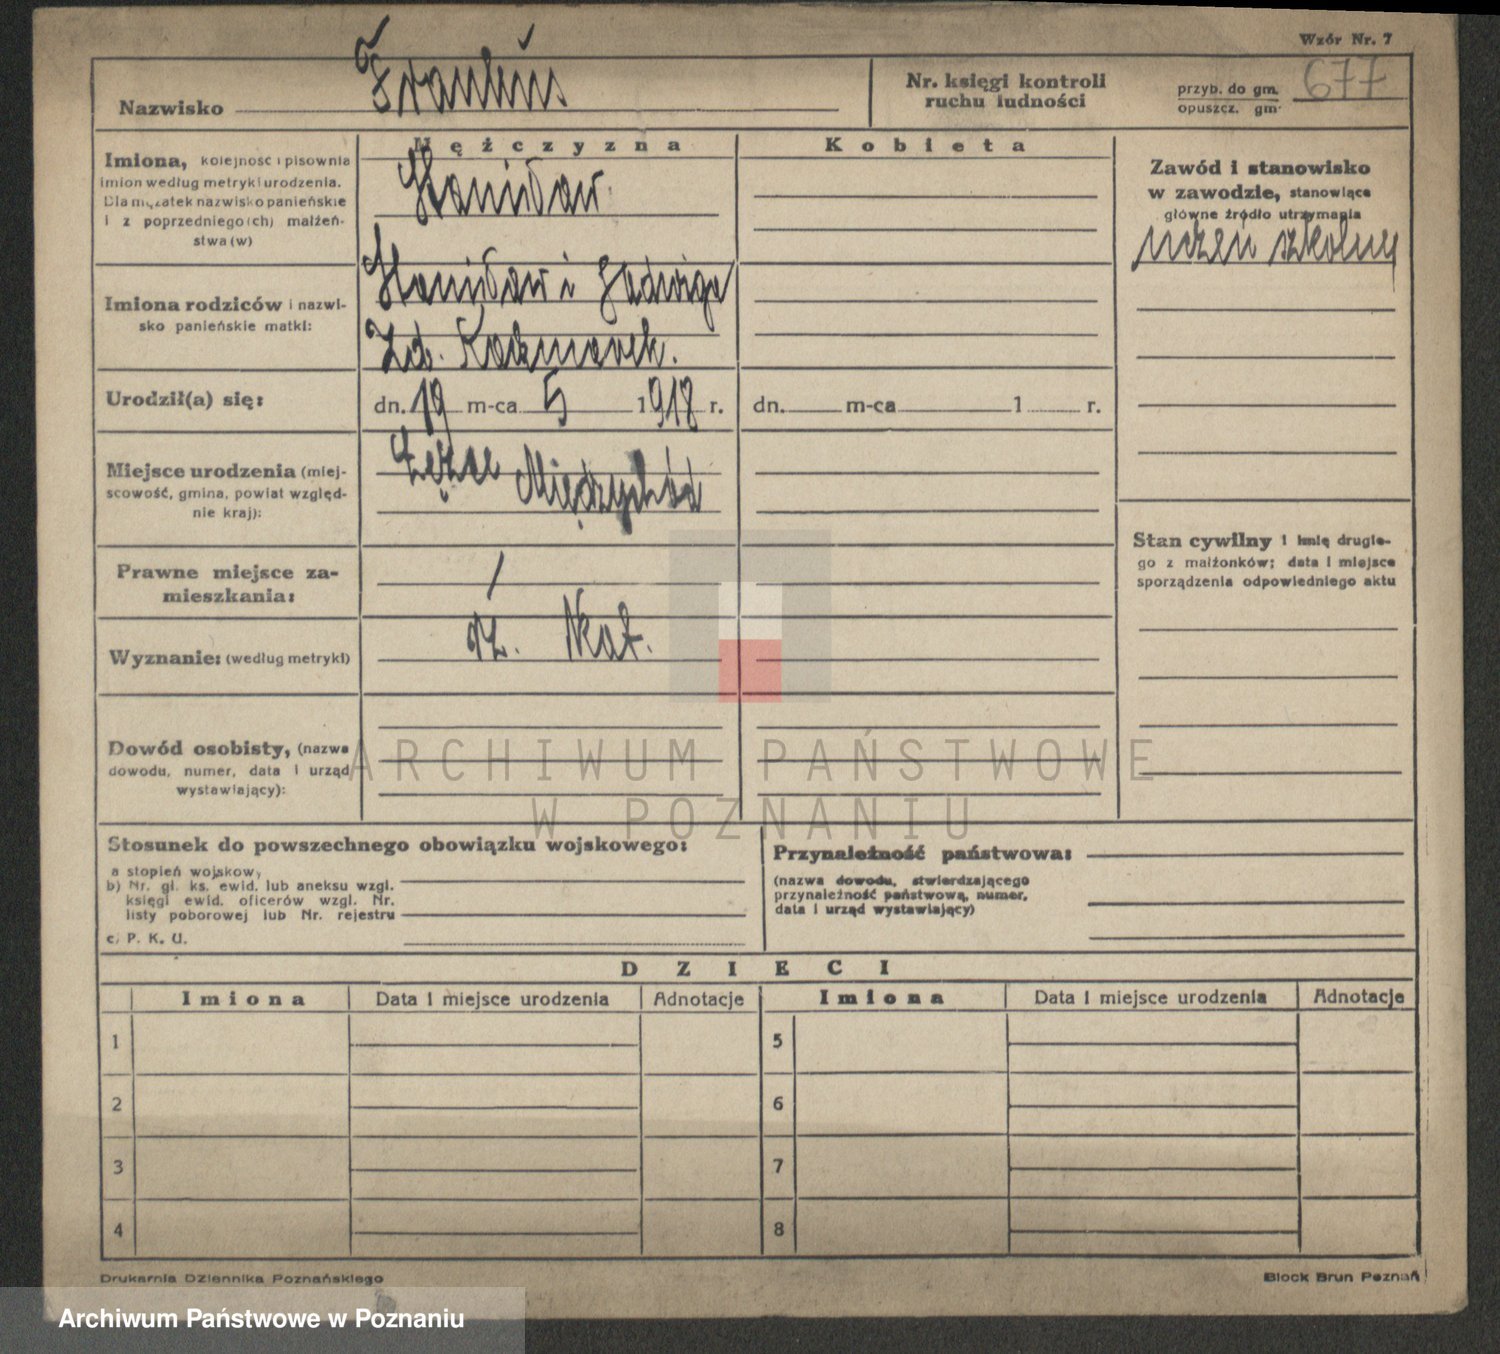 Wzór Nr. 7
Nazwisko
Nr. księgi kontroli
ruchu ludności
przyb. do gm.
opuszcz. gm.
677
Mężczyzna
Kobieta
Imiona, kolejność i pisownia
imion według metryki urodzenia.
Dla mężatek nazwisko panieńskie
i z poprzedniego(ch) małżeń-
stwa(w)
Stanisław
Zawód i stanowisko
w zawodzie, stanowiące
główne źródło utrzymania
uczeń szkolny
Imiona rodziców i nazwi-
sko panieńskie matki:
Stanisław i Jadwiga
Kaczmarek.
Urodził(a) się:
dn. 19 m-ca 5 1918 r.
dn. m-ca 1 r.
Miejsce urodzenia (miej-
scowość, gmina, powiat względ-
nie kraj):
Międzychód
Stan cywilny i imię drugie-
go z małżonków; data i miejsce
sporządzenia odpowiedniego aktu
Prawne miejsce za-
mieszkania:
/
Wyznanie: (według metryki)
rz. kat.
Dowód osobisty, (nazwa
dowodu, numer, data i urząd
wystawiający):
ARCHIWUM PAŃSTWOWE
W POZNANIU
Stosunek do powszechnego obowiązku wojskowego:
a stopień wojskowy
b) Nr. gł. ks. ewid. lub aneksu wzgl.
księgi ewid. oficerów wzgl. Nr.
listy poborowej lub Nr. rejestru
c) P. K. U.
Przynależność państwowa:
(nazwa dowodu, stwierdzającego
przynależność państwową, numer,
data i urząd wystawiający)
DZIECI
Imiona Data i miejsce urodzenia Adnotacje Imiona Data i miejsce urodzenia Adnotacje
1 5
2 6
3 7
4 8
Drukarnia Dziennika Poznańskiego
Block Brun Poznań
Archiwum Państwowe w Poznaniu